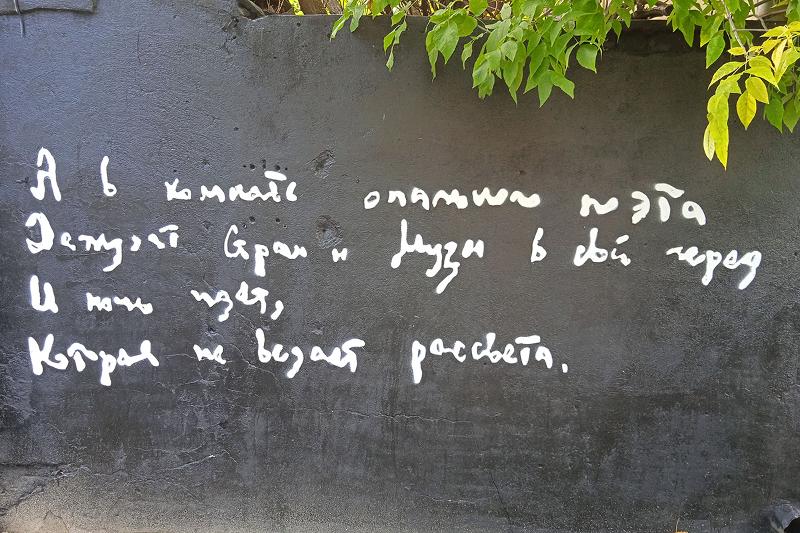 А в комнате опальной поэта
Дежурят Страх и Муза в свой черед
И ночь идет,
Которая не ведает рассвета.